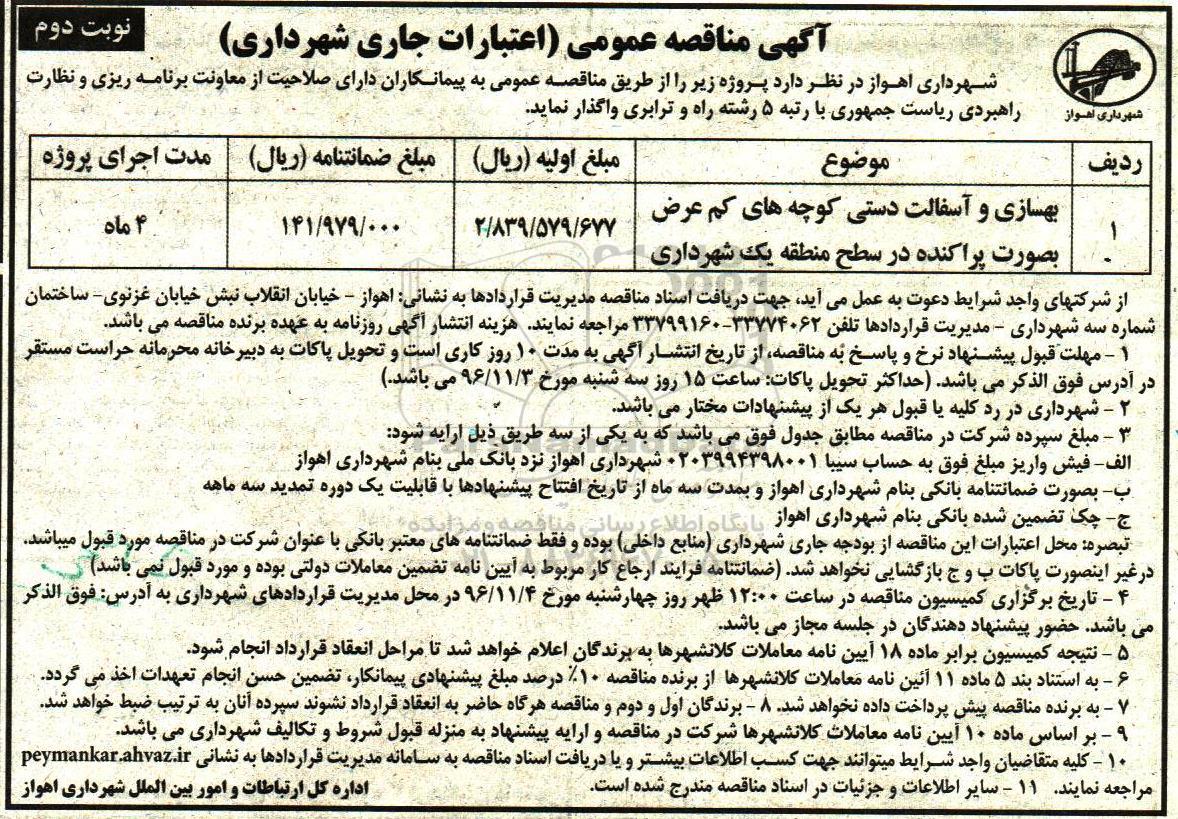 نوبت دوم
آگهی مناقصه عمومی (اعتبارات جاری شهرداری)
شهرداری اهواز
شهرداری اهواز در نظر دارد پروژه زیر را از طریق مناقصه عمومی به پیمانکاران دارای صلاحیت از معاونت برنامه ریزی و نظارت
راهبردی ریاست جمهوری با رتبه ۵ رشته راه و ترابری واگذار نماید.
ردیف موضوع مبلغ اولیه (ریال) مبلغ ضمانتنامه (ریال) مدت اجرای پروژه
۱ بهسازی و آسفالت دستی کوچه های کم عرض ۲/۸۳۹/۵۷۹/۶۷۷ ۱۴۱/۹۷۹/۰۰۰ ۴ ماه
بصورت پراکنده در سطح منطقه یک شهرداری
از شرکتهای واجد شرایط دعوت به عمل می آید، جهت دریافت اسناد مناقصه مدیریت قراردادها به نشانی: اهواز - خیابان انقلاب نبش خیابان غزنوی- ساختمان
شماره سه شهرداری - مدیریت قراردادها تلفن ۳۳۷۷۴۰۶۲-۳۳۷۹۹۱۶۰ مراجعه نمایند. هزینه انتشار آگهی روزنامه به عهده برنده مناقصه می باشد.
۱ - مهلت قبول پیشنهاد نرخ و پاسخ به مناقصه، از تاریخ انتشار آگهی به مدت ۱۰ روز کاری است و تحویل پاکات به دبیرخانه محرمانه حراست مستقر
در آدرس فوق الذکر می باشد. (حداکثر تحویل پاکات: ساعت ۱۵ روز سه شنبه مورخ ۹۶/۱۱/۳ می باشد.)
۲ - شهرداری در رد کلیه یا قبول هر یک از پیشنهادات مختار می باشد.
۳ - مبلغ سپرده شرکت در مناقصه مطابق جدول فوق می باشد که به یکی از سه طریق ذیل ارایه شود:
الف- فیش واریز مبلغ فوق به حساب سیبا ۰۲۰۳۹۹۴۳۹۸۰۰۱ شهرداری اهواز نزد بانک ملی بنام شهرداری اهواز
ب- بصورت ضمانتنامه بانکی بنام شهرداری اهواز و بمدت سه ماه از تاریخ افتتاح پیشنهادها با قابلیت یک دوره تمدید سه ماهه
ج- چک تضمین شده بانکی بنام شهرداری اهواز
تبصره: محل اعتبارات این مناقصه از بودجه جاری شهرداری (منابع داخلی) بوده و فقط ضمانتنامه های معتبر بانکی با عنوان شرکت در مناقصه مورد قبول میباشد.
درغیر اینصورت پاکات ب و ج بازگشایی نخواهد شد. (ضمانتنامه فرایند ارجاع کار مربوط به آیین نامه تضمین معاملات دولتی بوده و مورد قبول نمی باشد)
۴ - تاریخ برگزاری کمیسیون مناقصه در ساعت ۱۲:۰۰ ظهر روز چهارشنبه مورخ ۹۶/۱۱/۴ در محل مدیریت قراردادهای شهرداری به آدرس: فوق الذکر
می باشد. حضور پیشنهاد دهندگان در جلسه مجاز می باشد.
۵ - نتیجه کمیسیون برابر ماده ۱۸ آیین نامه معاملات کلانشهرها به برندگان اعلام خواهد شد تا مراحل انعقاد قرارداد انجام شود.
۶ - به استناد بند ۵ ماده ۱۱ آئین نامه معاملات کلانشهرها از برنده مناقصه ۱۰٪ درصد مبلغ پیشنهادی پیمانکار، تضمین حسن انجام تعهدات اخذ می گردد.
۷ - به برنده مناقصه پیش پرداخت داده نخواهد شد. ۸ - برندگان اول و دوم و مناقصه هرگاه حاضر به انعقاد قرارداد نشوند سپرده آنان به ترتیب ضبط خواهد شد.
۹ - بر اساس ماده ۱۰ آیین نامه معاملات کلانشهرها شرکت در مناقصه و ارایه پیشنهاد به منزله قبول شروط و تکالیف شهرداری می باشد.
۱۰ - کلیه متقاضیان واجد شرایط میتوانند جهت کسب اطلاعات بیشتر و یا دریافت اسناد مناقصه به سامانه مدیریت قراردادها به نشانی peymankar.ahvaz.ir
مراجعه نمایند. ۱۱ - سایر اطلاعات و جزئیات در اسناد مناقصه مندرج شده است.
اداره کل ارتباطات و امور بین الملل شهرداری اهواز
پایگاه اطلاع رسانی مناقصه و مزایده